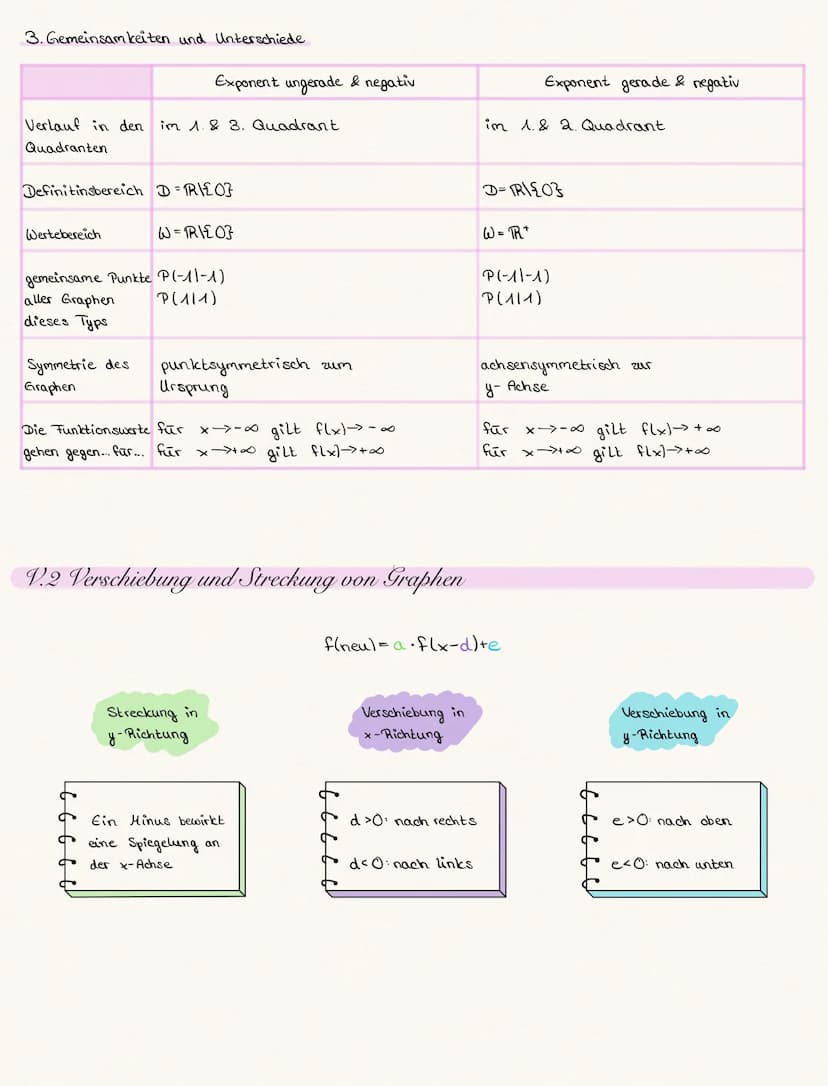 3. Gemeinsamkeiten und Unterschiede
Exponent ungerade & negativ
Exponent gerade & negativ
Verlauf in den Quadranten
im 1. & 3. Quadrant
im 1. & 2. Quadrant
Definitinsbereich
D = ℝ\{0}
D = ℝ\{0}
Wertebereich
W = ℝ\{0}
W = ℝ⁺
gemeinsame Punkte
aller Graphen
dieses Typs
P(-1|-1)
P(1|1)
P(-1|-1)
P(1|1)
Symmetrie des
Graphen
punktsymmetrisch zum
Ursprung
achsensymmetrisch zur
y- Achse
Die Funktionswerte
gehen gegen... für...
für x→-∞ gilt f(x)→-∞
für x→+∞ gilt f(x)→+∞
für x→-∞ gilt f(x)→+∞
für x→+∞ gilt f(x)→+∞
V.2 Verschiebung und Streckung von Graphen
f(neu) = a · f(x-d)+e
Streckung in
y-Richtung
Verschiebung in
x-Richtung
Verschiebung in
y-Richtung
Ein Minus bewirkt
eine Spiegelung an
der x-Achse
d >0: nach rechts
d<0: nach links
e>0: nach oben
e<0: nach unten